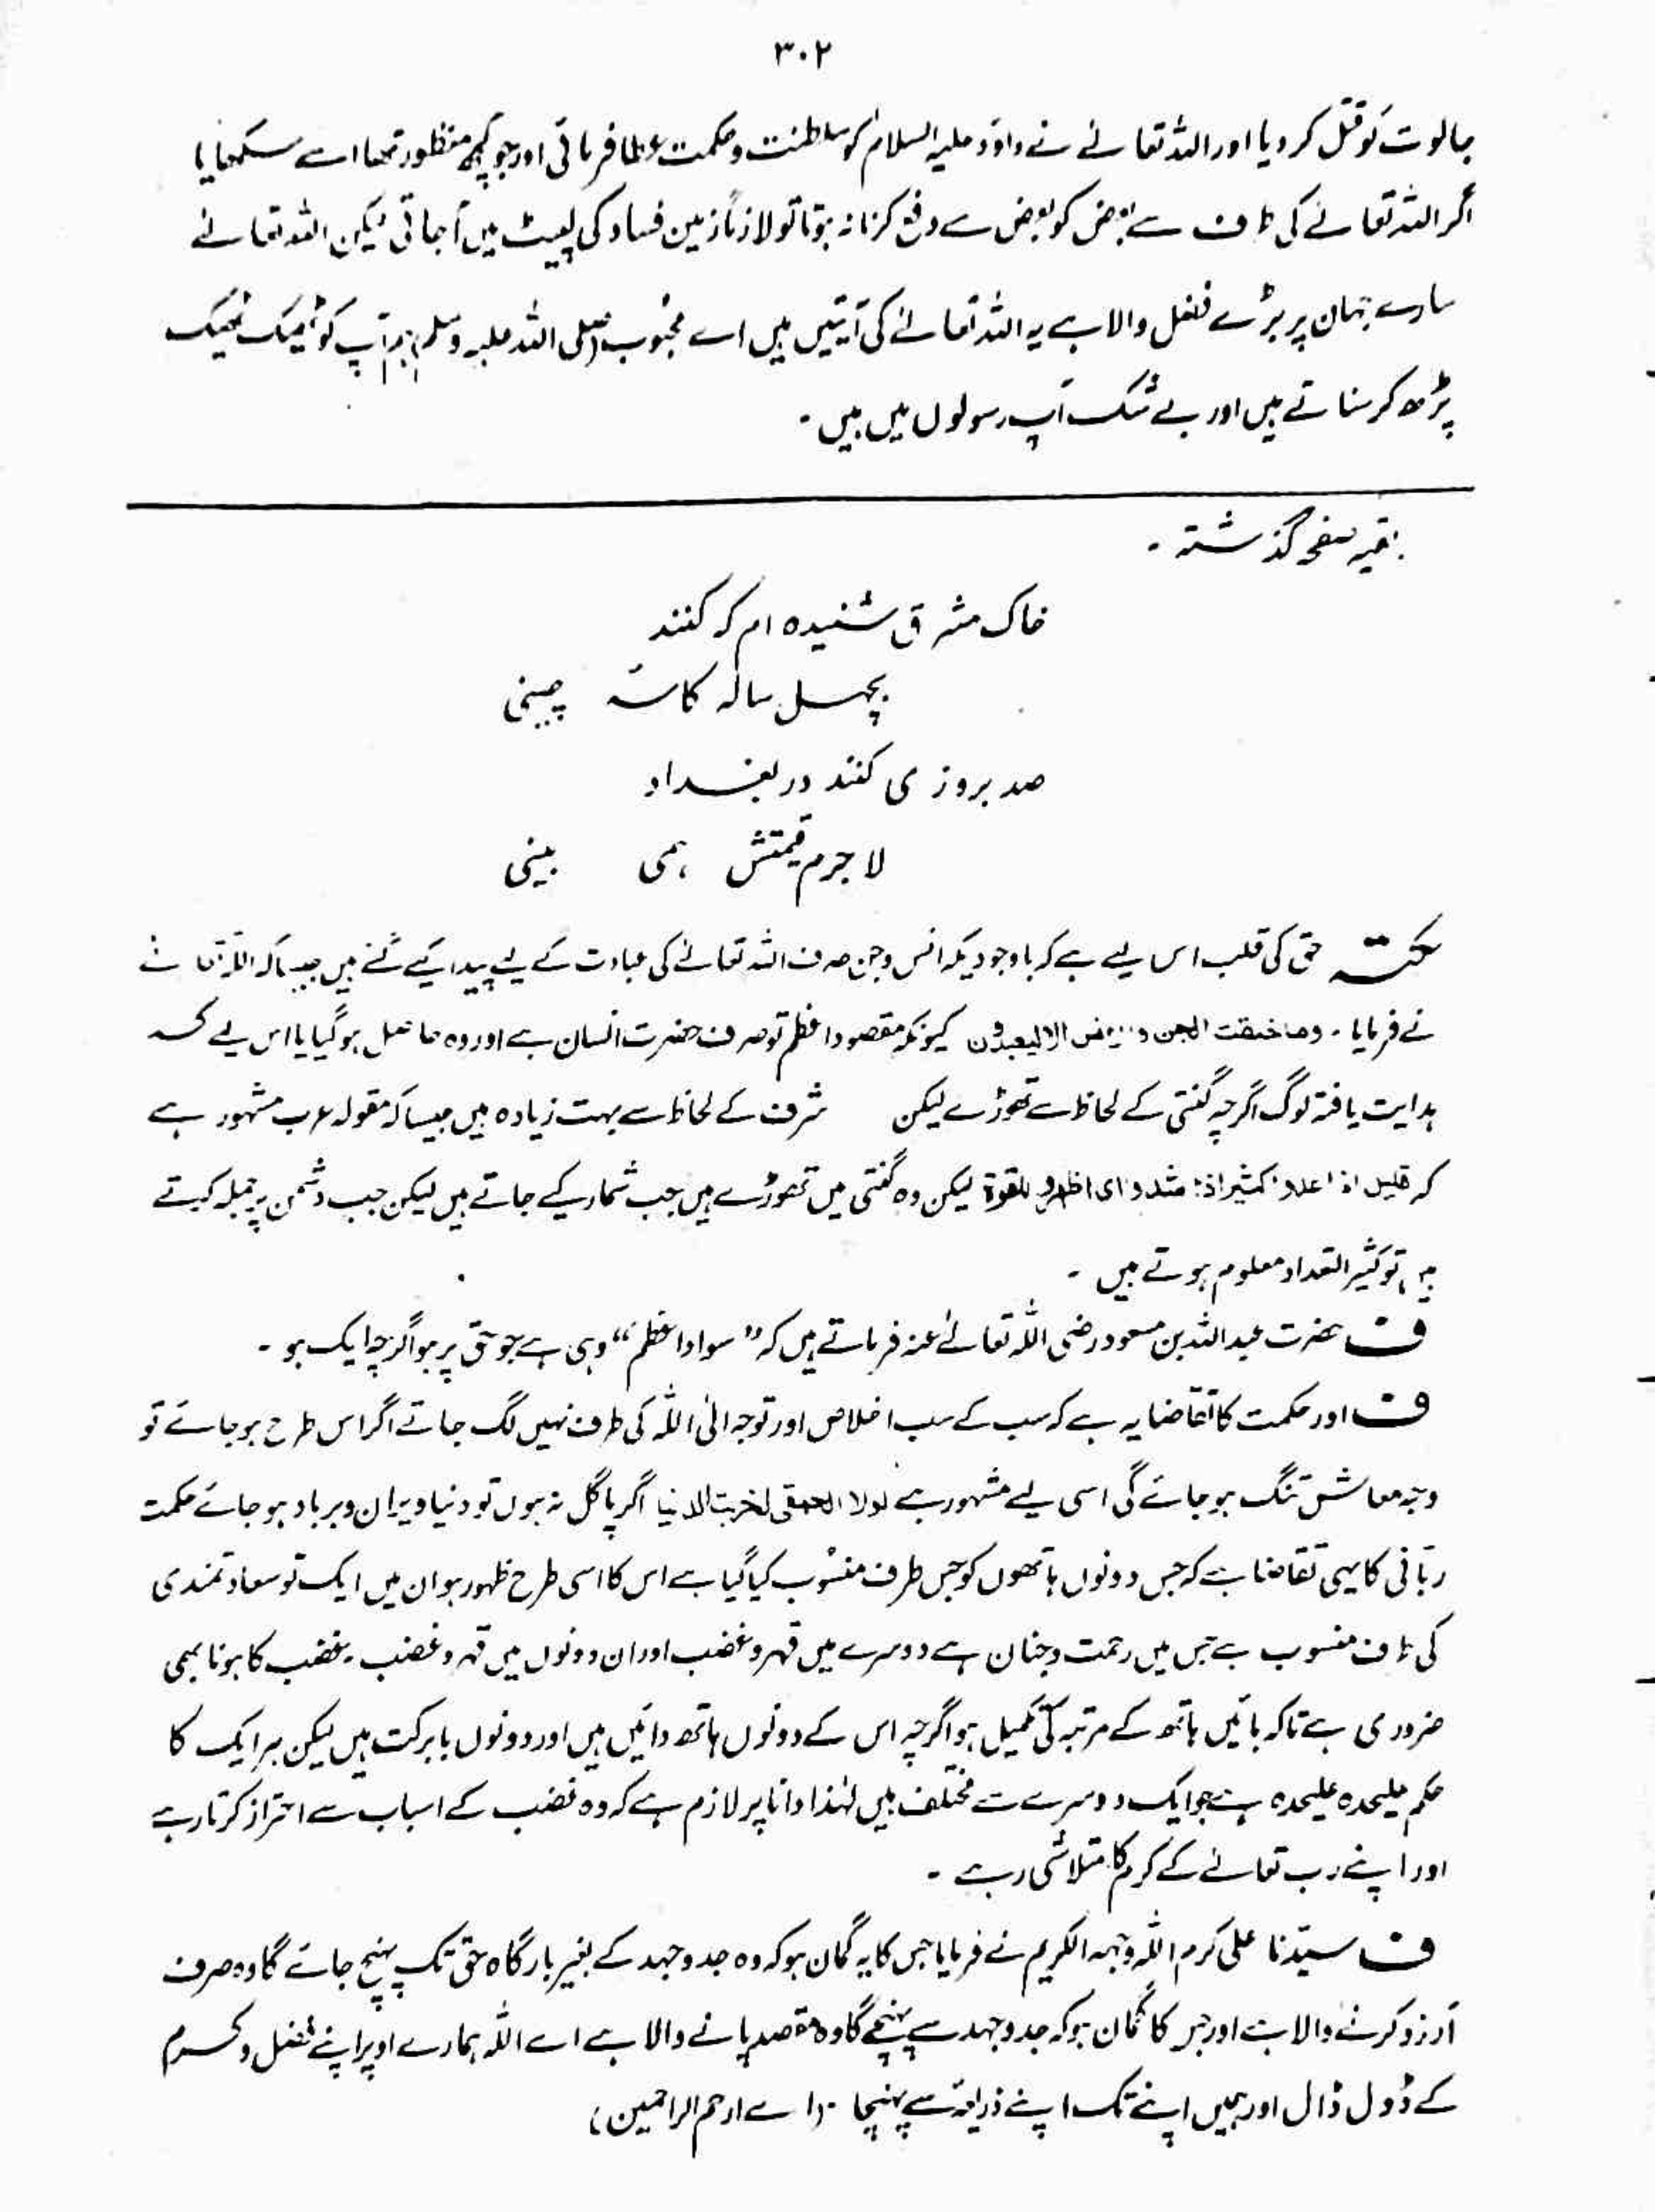 ۳۰۲
جالوت کو قتل کر دیا اور اللہ تعالےٰ نے داؤد علیہ السلام کو سلطنت و حکمت عطا فرمائی اور جو کچھ منظور تھا اسے سکھایا
اگر اللہ تعالےٰ کی طرف سے بعض کو بعض سے دفع کرنا نہ ہوتا تو لازماً زمین فساد کی لپیٹ میں آجاتی لیکن اللہ تعالےٰ
سارے جہان پر بڑے فضل والا ہے یہ اللہ تعالےٰ کی آیتیں ہیں اے محبوب (صلی اللہ علیہ وسلم) ہم آپ کو ٹھیک ٹھیک
پڑھ کر سناتے ہیں اور بے شک آپ رسولوں میں ہیں ۔
بقیہ صفحہ گذشتہ ۔
خاک مشرق شنیدہ ام کہ کنند
بچہل سالہ کاسۂ چینی
صد بروزی کنند در بغداد
لا جرم قیمتش ہمی بینی
نکتہ حق کی قلب اس لیے ہے کہ باوجودیکہ انس و جن صرف اللہ تعالےٰ کی عبادت کے لیے پیدا کیے گئے ہیں جیسا کہ اللہ تعالےٰ
نے فرمایا ۔ وما خلقت الجن والانس الا لیعبدون کیونکہ مقصود اعظم تو صرف حضرت انسان ہے اور وہ حاصل ہو گیا یا اس لیے کہ
ہدایت یافتہ لوگ اگرچہ گنتی کے لحاظ سے تھوڑے لیکن شرف کے لحاظ سے بہت زیادہ ہیں جیسا کہ مقولہ عرب مشہور ہے
کہ قلیل اذا عدوا کثیر اذا شدوا ای اظہروا القوة لیکن وہ گنتی میں تھوڑے ہیں جب شمار کیے جاتے ہیں لیکن جب دشمن پر حملہ کرتے
ہیں تو کثیر التعداد معلوم ہوتے ہیں ۔
ف حضرت عبد اللہ بن مسعود رضی اللہ تعالےٰ عنہ فرماتے ہیں کہ "سواد اعظم" وہی ہے جو حق پر ہو اگرچہ ایک ہو ۔
ف اور حکمت کا تقاضا یہ ہے کہ سب کے سب اخلاص اور توجہ الیٰ اللہ کی طرف نہیں لگ جاتے اگر اس طرح ہو جائے تو
وجہ معاش تنگ ہو جائے گی اسی لیے مشہور ہے لولا الحمقی لخربت الدنیا اگر پاگل نہ ہوں تو دنیا ویران و برباد ہو جائے حکمت
ربّانی کا یہی تقاضا ہے کہ جس دونوں ہاتھوں کو جس طرف منسوب کیا گیا ہے اس کا اسی طرح ظہور ہو ان میں ایک تو سعادتمندی
کی طرف منسوب ہے جس میں رحمت و جنان ہے دوسرے میں قہر و غضب اور ان دونوں میں قہر و غضب ۔ غضب کا ہونا بھی
ضروری ہے تاکہ بائیں ہاتھ کے مرتبہ کی تکمیل ہو اگرچہ اس کے دونوں ہاتھ دائیں ہیں اور دونوں بابرکت ہیں لیکن ہر ایک کا
حکم علیحدہ علیحدہ ہے جو ایک دوسرے سے مختلف ہیں لہٰذا دانا پر لازم ہے کہ وہ غضب کے اسباب سے احتراز کرتا رہے
اور اپنے رب تعالےٰ کے کرم کا متلاشی رہے ۔
ف سیّدنا علی کرم اللہ وجہہ الکریم نے فرمایا جس کا یہ گمان ہو کہ وہ جدوجہد کے بغیر بارگاہ حق تک پہنچ جائے گا وہ صرف
آرزو کرنے والا ہے اور جس کا گمان ہو کہ جدوجہد سے پہنچے گا وہ مقصد پانے والا ہے اے اللہ ہمارے اوپر اپنے فضل و کرم
کے ڈول ڈال اور ہمیں اپنے تک اپنے ذریعہ سے پہنچا ۔ (اے ارحم الراحمین)